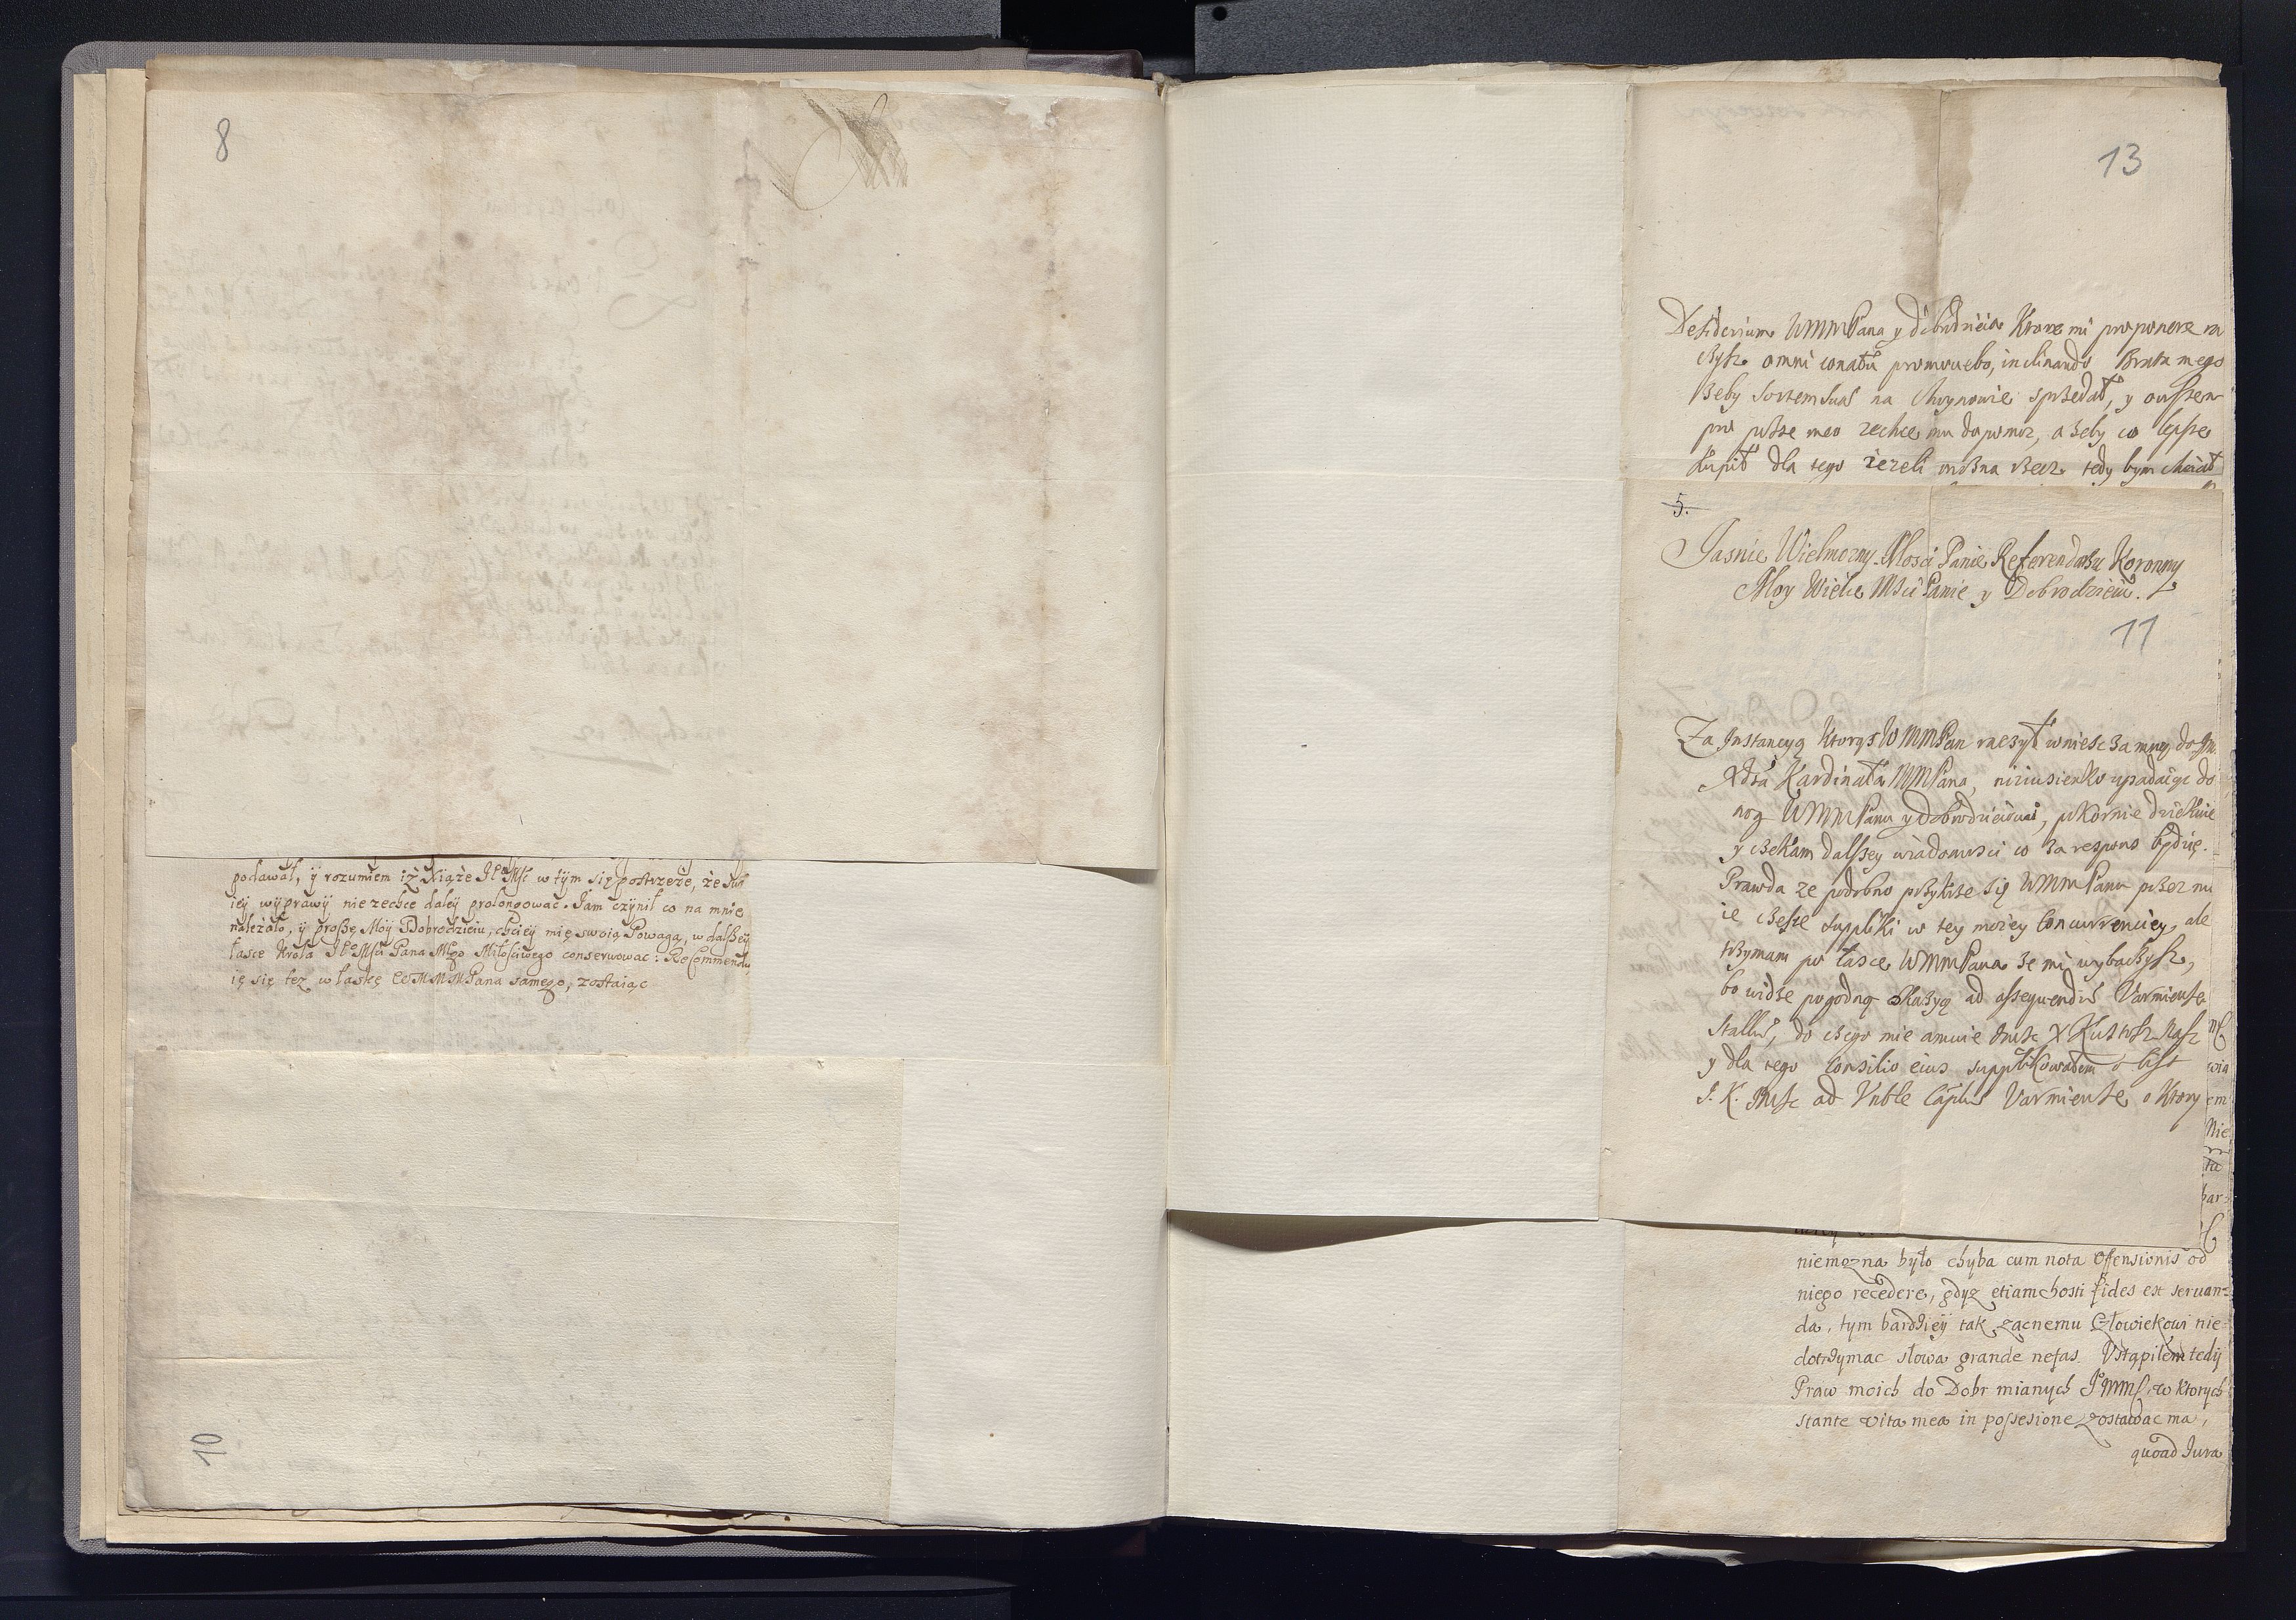 8
podawał, ÿ rozumiem iż Xiąże JeoMsc w tÿm się postrzeże, że
ieÿ wyprawÿ nie zechce daleÿ prolongowac. Jam czÿnił co na mnie
należało, ÿ proszę Móÿ Dobrodzieiu, chcieÿ mię swoią Powagą, w dalszeÿ
łasce Krola JeoMsci Pana Mego Miłościwego conserwowac: Recommendu
ię się tez w łaskę WMMMPana samego, zostaiąc
10
13
Desiderium WMMPana y dobrodzieia ktore mi proponere ra
czysz omni conatu promouebo, inclinando Brata mego
zeby sortem suas na spzedał, y
pro posse meo zechce mu dopomoz, a zeby co lepsze
kupił dla tego iezeli mozna rzecz tedy bym chciał
5.
Jasnie Wielmozny Mosci Panie Referendazu Koronny
Moy Wielce Msci Panie y Dobrodzieiu.
11
Za Instancyą ktorąs WMMPan raczył wniesc za mną do Jm.
Xdza Kardinała MMPana, niziusienko upadaiąc do
nog WMMPanu y Dobrodzieiowi, pokornie dziekuie
y czekam dalszey wiadomosci co za respons będzie.
Prawda ze podobno pzykze się WMMPanu pzez mo
ie czeste suppliki w tey moiey Concurrenciey, ale
tzymam po łasce WMMPana ze mi wybaczysz,
bo widze pogodną okazyą ad assequendus Varmiense
Stallus, do czego mie Jmsc X Kustosz nasz
y dla tego consilio eius supplikowałem o list
J. K. Jmsc ad Vnble Capłus Varmiense, o ktory
wia
em
Nie
bar-
niemozna było chyba cum nota offensionis od
niego recedere, gdyz etiam hosti fides est seruan-
da, tym bardzieÿ tak zacnemu Człowiekowi nie
dotrzymac słowa grande nefas. Vstąpiłem tedÿ
Praw moich do Dobr mianych JMMści, w ktorych
stante vita mea in possesione zostawac ma,
quoad Jura